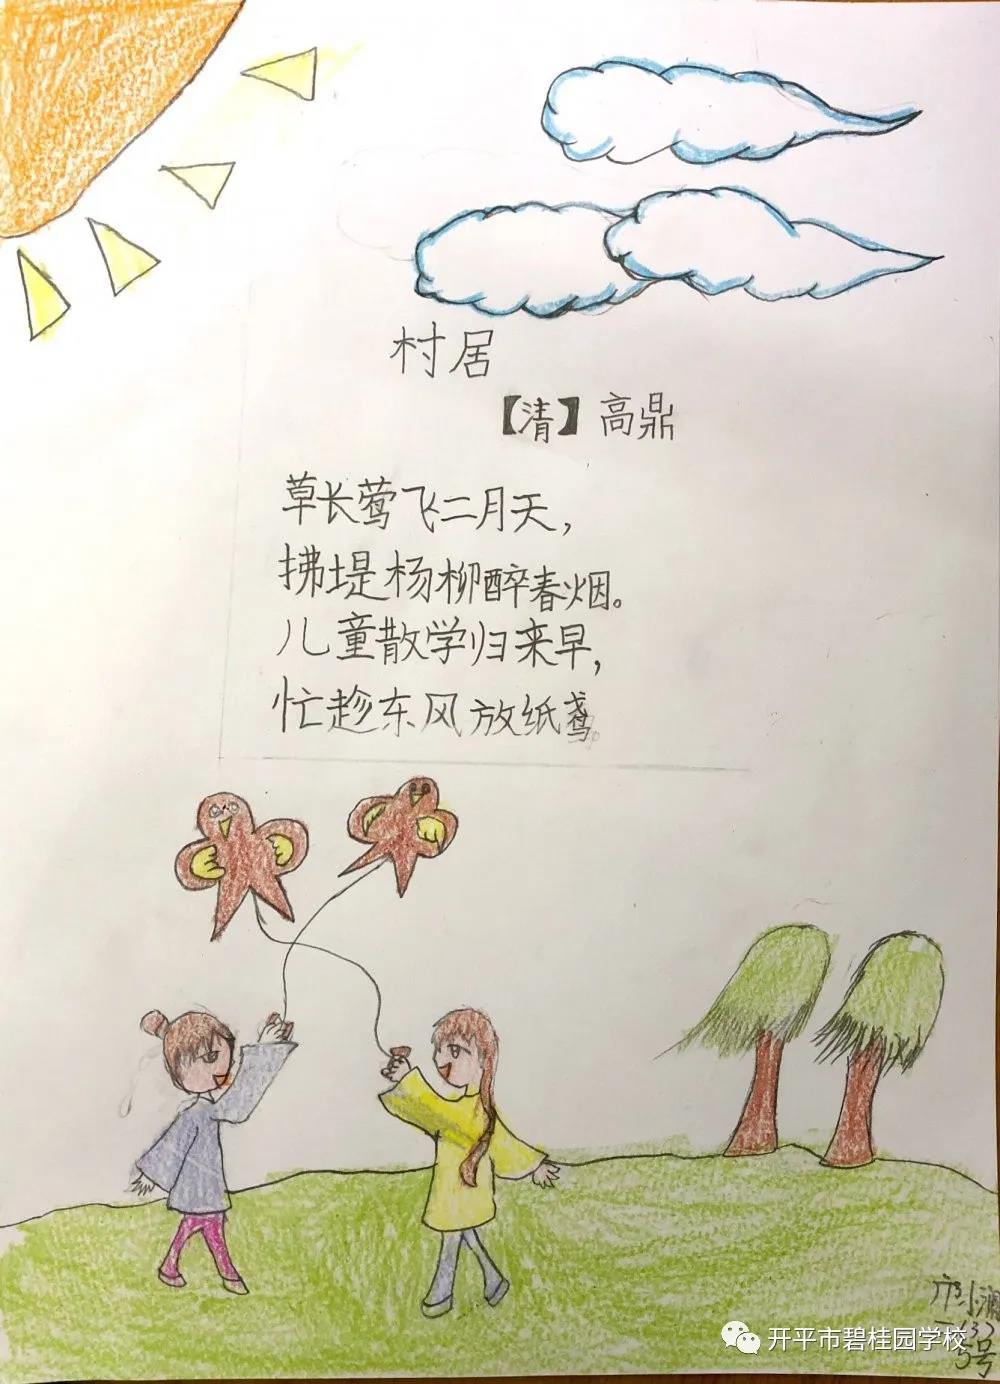 村居
【清】高鼎
草长莺飞二月天，
拂堤杨柳醉春烟。
儿童散学归来早，
忙趁东风放纸鸢。
开平市碧桂园学校
5号